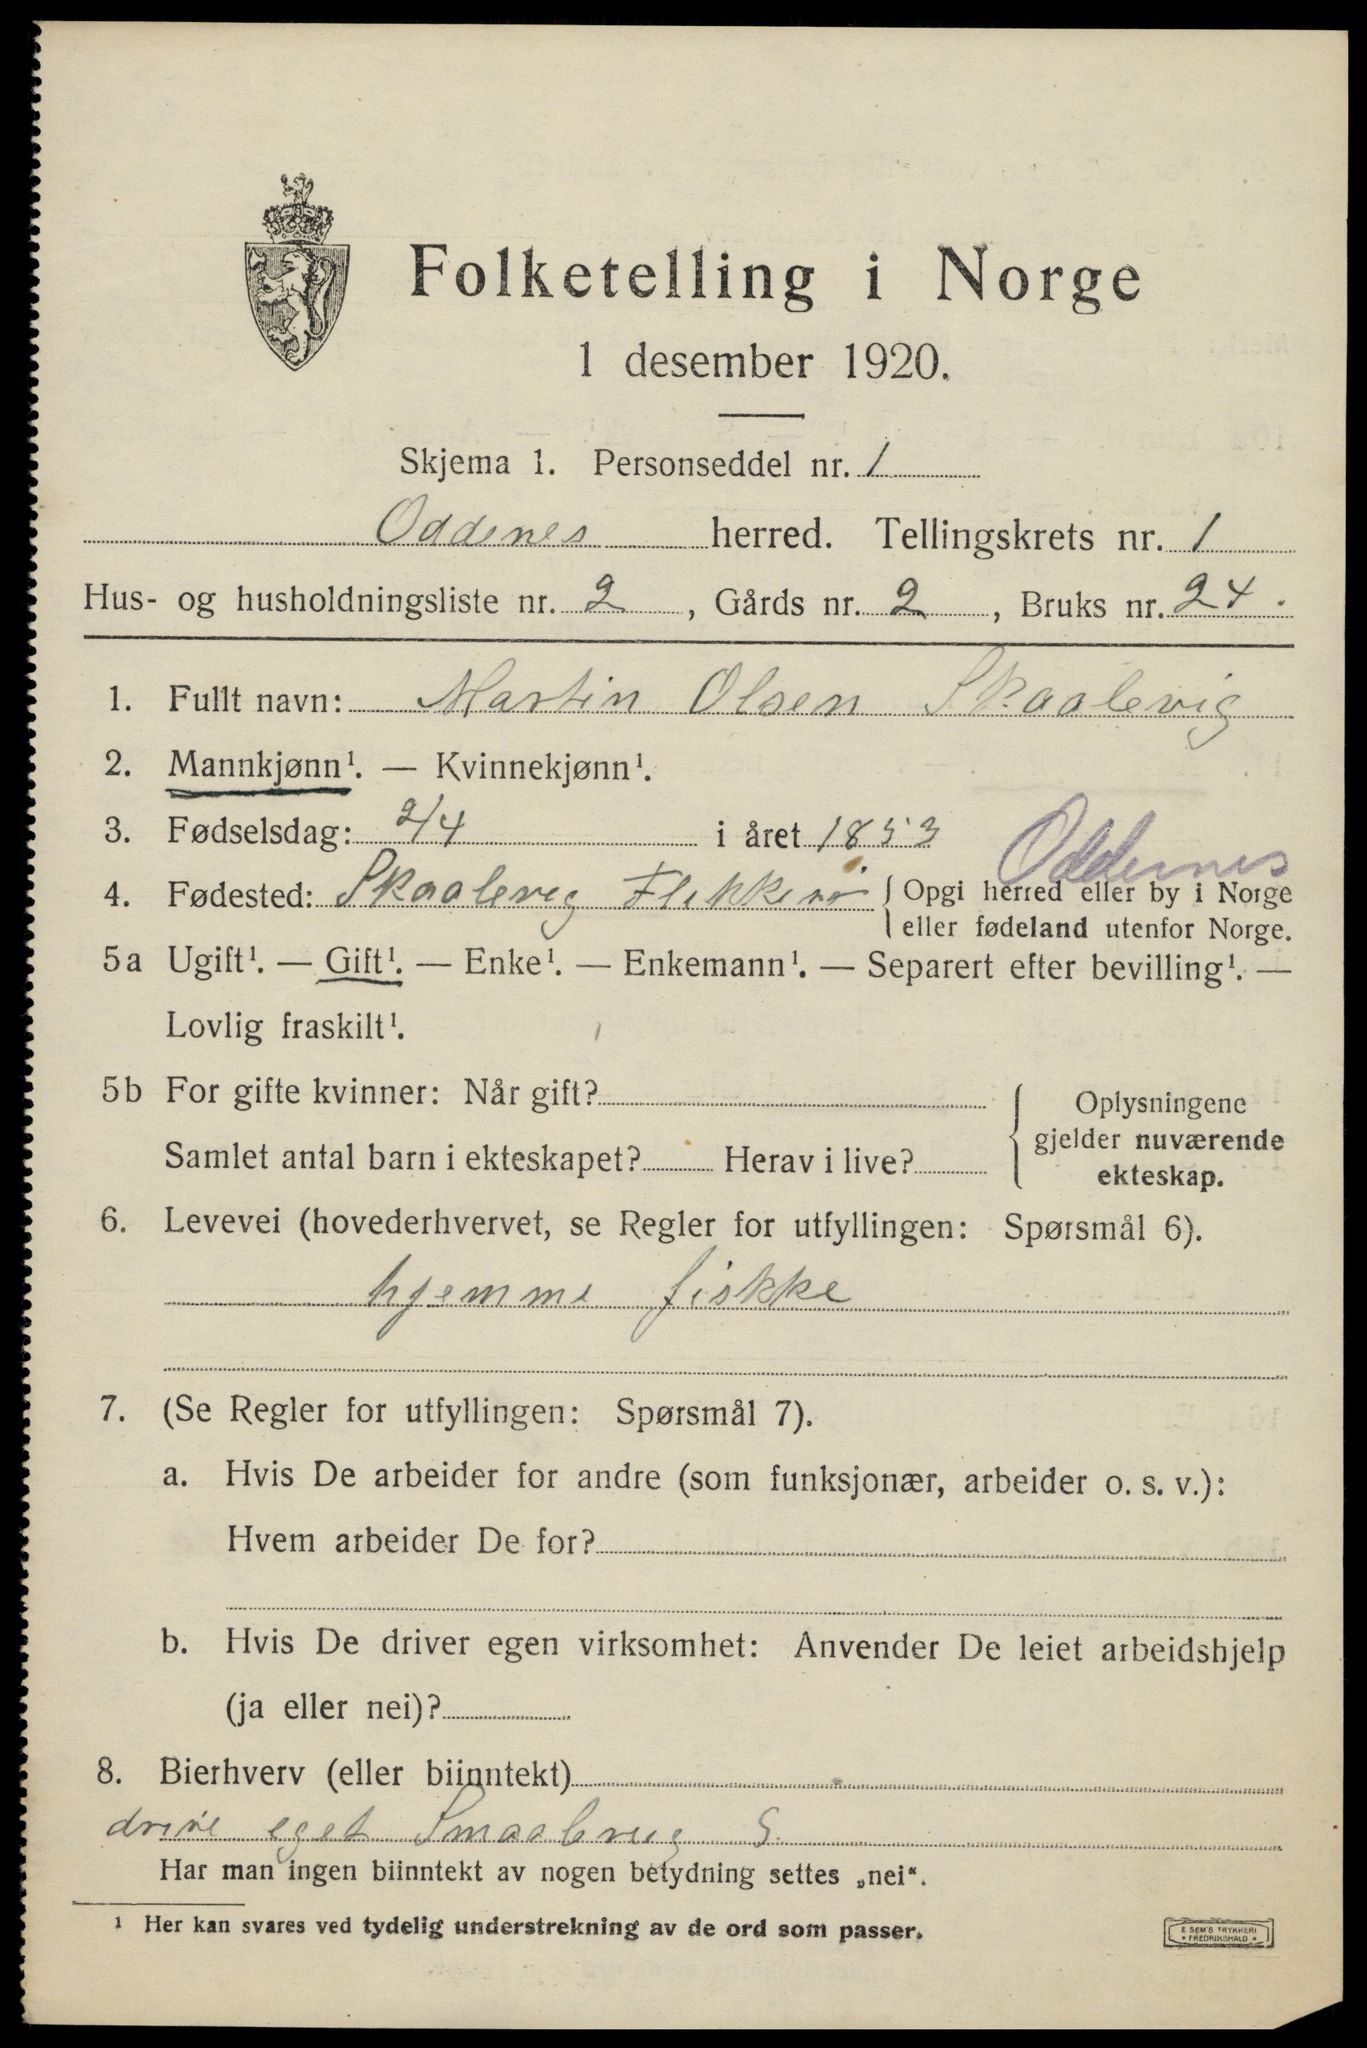 Folketelling i Norge
1 desember 1920.
Skjema 1. Personseddel nr. 1
Oddenes herred. Tellingskrets nr. 1
Hus- og husholdningsliste nr. 2, Gårds nr. 2, Bruks nr. 24.
1. Fullt navn: Martin Olsen Skaalevig
2. Mannkjønn¹. — Kvinnekjønn¹.
3. Fødselsdag: 2/4 i året 1853
Oddernes
4. Fødested: Skaalevig Flekkerø { Opgi herred eller by i Norge
eller fødeland utenfor Norge.
5a Ugift¹. — Gift¹. — Enke¹. — Enkemann¹. — Separert efter bevilling¹. —
Lovlig fraskilt¹.
5b For gifte kvinner: Når gift?
Samlet antal barn i ekteskapet? Herav i live?
Oplysningene
gjelder nuværende
ekteskap.
6. Levevei (hovederhvervet, se Regler for utfyllingen: Spørsmål 6).
hjemme fiskke
7. (Se Regler for utfyllingen: Spørsmål 7).
a. Hvis De arbeider for andre (som funksjonær, arbeider o. s. v.):
Hvem arbeider De for?
b. Hvis De driver egen virksomhet: Anvender De leiet arbeidshjelp
(ja eller nei)?
8. Bierhverv (eller biinntekt)
drive eget Smaabrug S
Har man ingen biinntekt av nogen betydning settes „nei“.
¹ Her kan svares ved tydelig understrekning av de ord som passer.
E. SEM'S TRYKKERI
* FREDRIKSHALD *